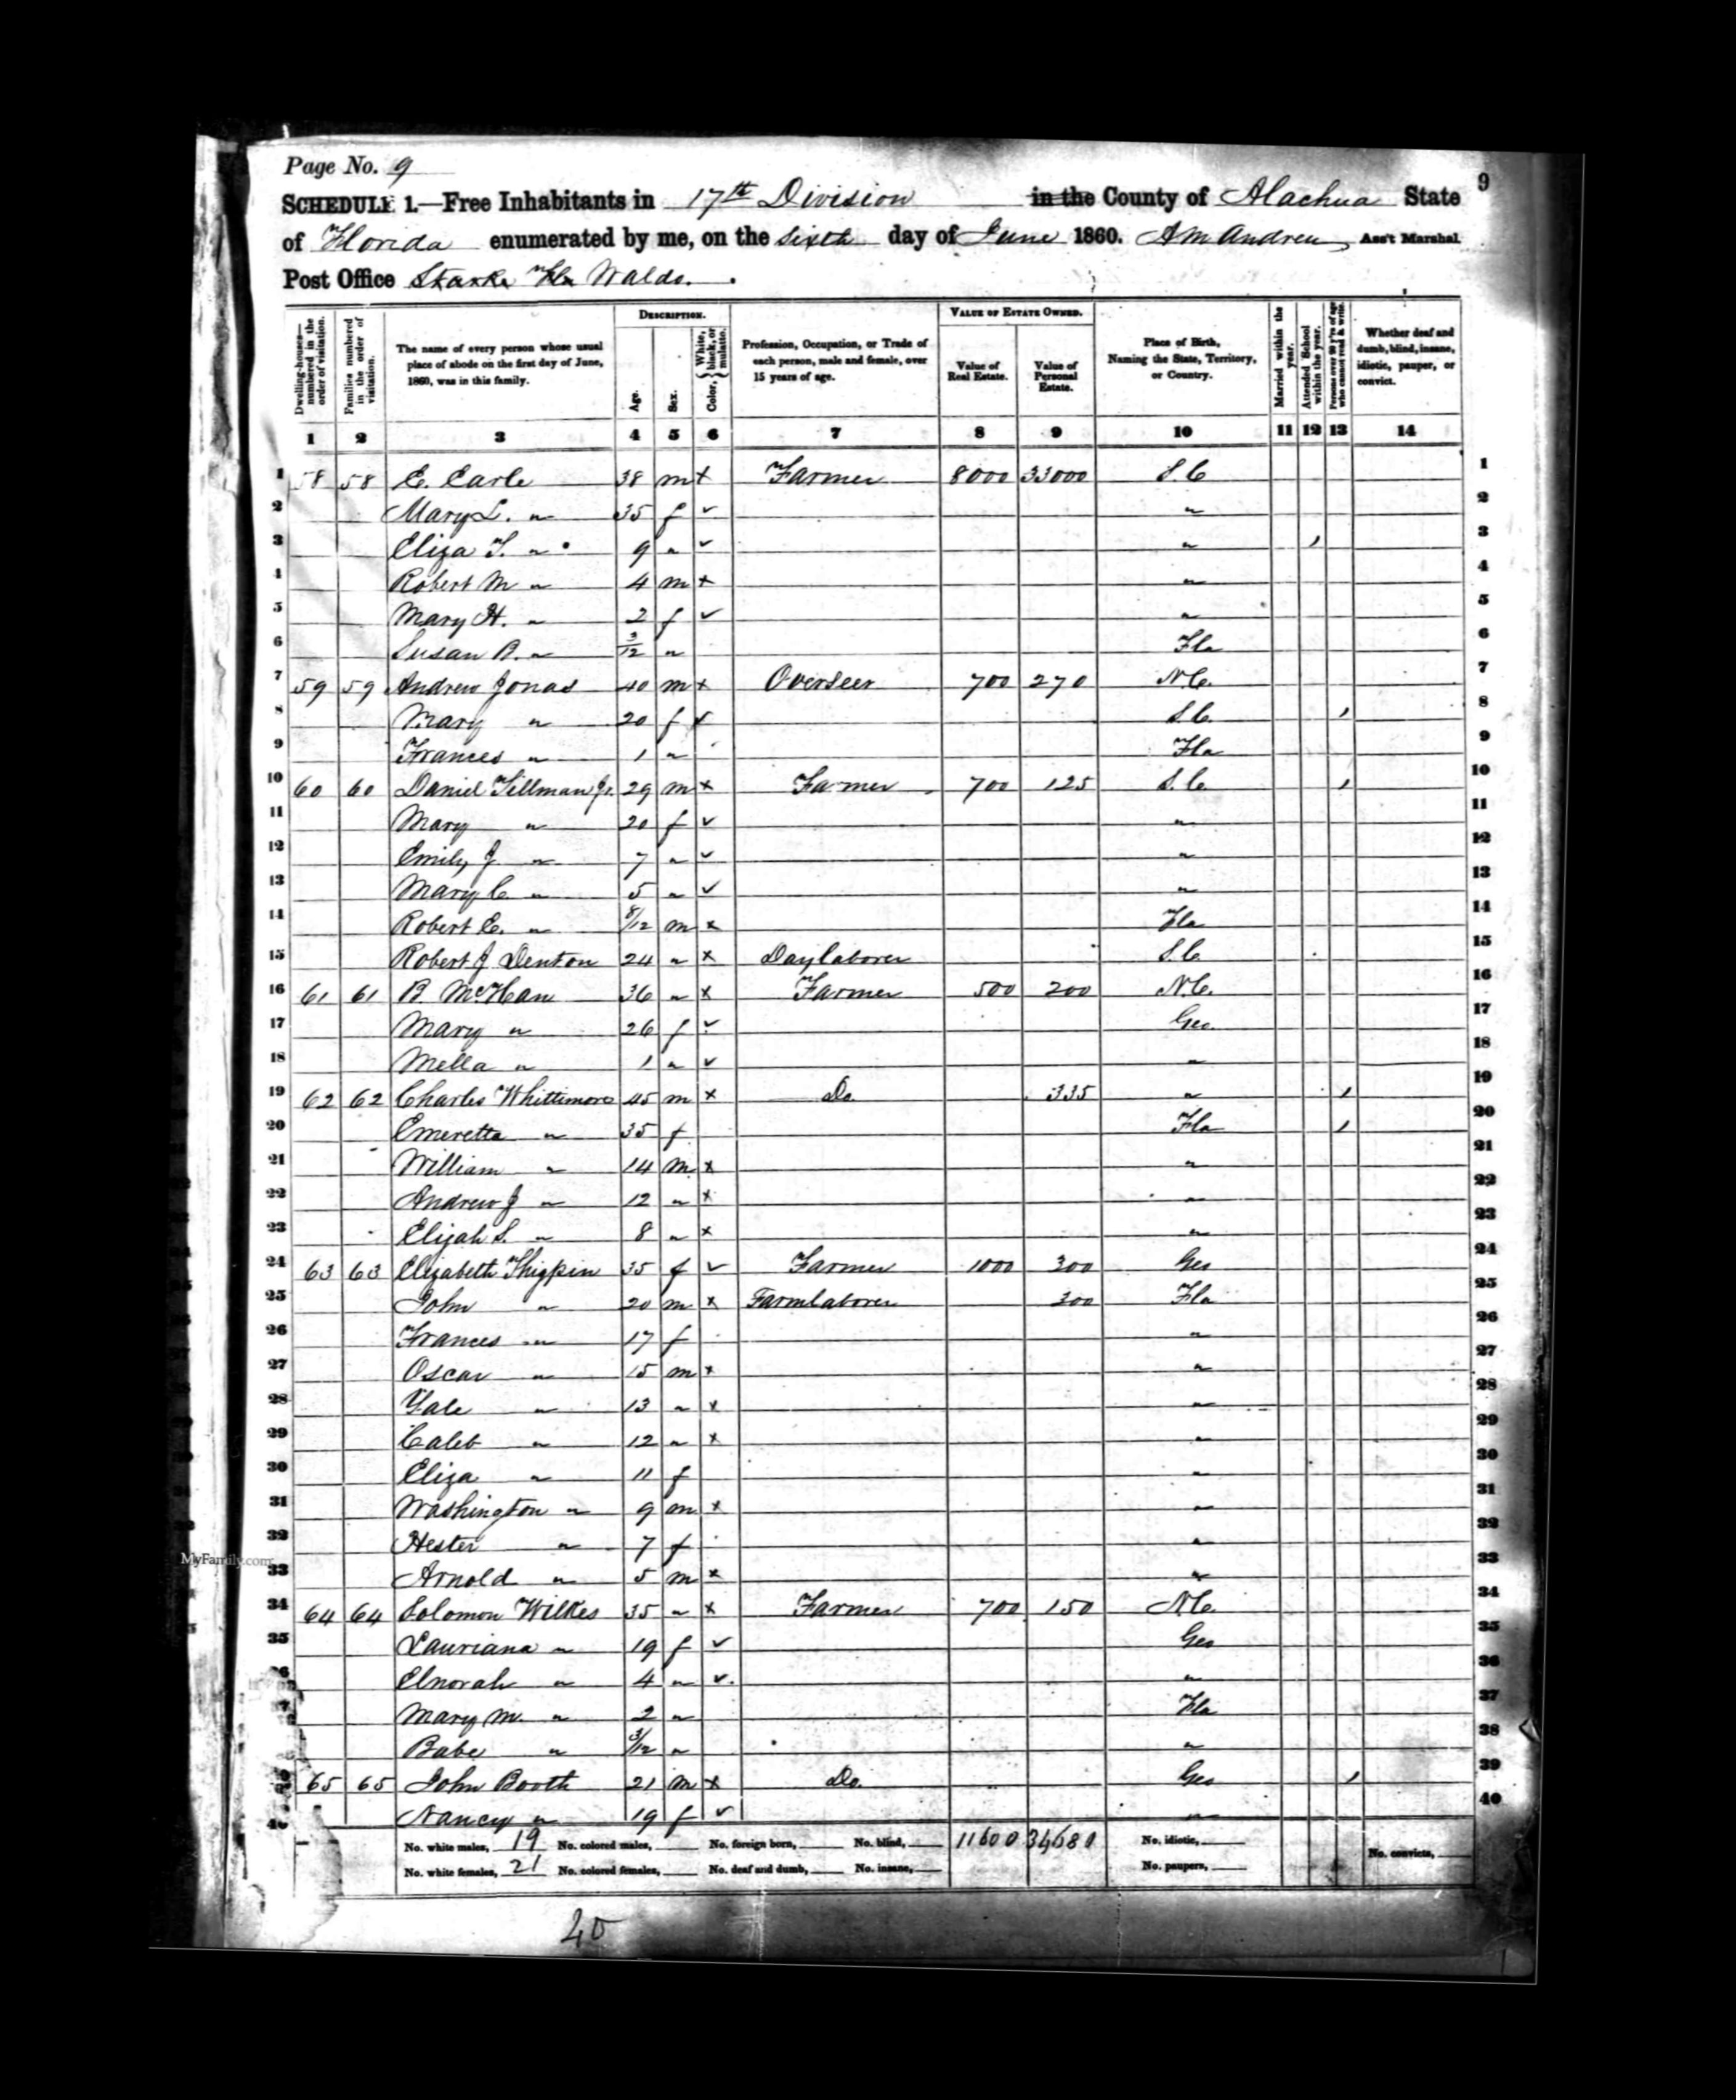 Page No. 9
9
SCHEDULE 1.—Free Inhabitants in 17th Division in the County of Alachua State
of Florida enumerated by me, on the sixth day of June 1860. A M Andreu Ass't Marshal
Post Office Starke Fla Waldo.
Dwelling-houses—numbered in the order of visitation.
Families numbered in the order of visitation.
The name of every person whose usual place of abode on the first day of June, 1860, was in this family.
DESCRIPTION.
Age.
Sex.
Color, { White, black, or mulatto.
Profession, Occupation, or Trade of each person, male and female, over 15 years of age.
VALUE OF ESTATE OWNED.
Value of Real Estate.
Value of Personal Estate.
Place of Birth, Naming the State, Territory, or Country.
Married within the year.
Attended School within the year.
Persons over 20 y'rs of age who cannot read & write.
Whether deaf and dumb, blind, insane, idiotic, pauper, or convict.
1 2 3 4 5 6 7 8 9 10 11 12 13 14
1 58 58 E. Earle 38 m x Farmer 8000 33000 S.C 1
2 Mary L. " 35 f ✓ " 2
3 Eliza T. " 9 " ✓ " / 3
4 Robert M " 4 m x " 4
5 Mary H. " 2 f ✓ " 5
6 Susan B. " 3/12 " Fla 6
7 59 59 Andrew Jonas 40 m x Overseer 700 270 N.C. 7
8 Mary " 20 f ✓ S.C. / 8
9 Frances " 1 " Fla 9
10 60 60 Daniel Tillman Jr. 29 m x Farmer 700 125 S.C. / 10
11 Mary " 20 f ✓ " 11
12 Emily J " 7 " ✓ " 12
13 Mary C. " 5 " ✓ " 13
14 Robert E. " 8/12 m x Fla 14
15 Robert J Denton 24 " x Day laborer S.C 15
16 61 61 B. McHan 36 " x Farmer 500 200 N.C. 16
17 Mary " 26 f ✓ Geo. 17
18 Mella " 1 " ✓ " 18
19 62 62 Charles Whittimore 45 m x Do 335 " / 19
20 Emeretta " 35 f Fla / 20
21 William " 14 m x " 21
22 Andrew J " 12 " x " 22
23 Elijah S. " 8 " x " 23
24 63 63 Elizabeth Thigpin 35 f ✓ Farmer 1000 300 Geo 24
25 John " 20 m x Farmlaborer 300 Fla 25
26 Frances " 17 f " 26
27 Oscar " 15 m x " 27
28 Yale " 13 " x " 28
29 Caleb " 12 " x " 29
30 Eliza " 11 f " 30
31 Washington " 9 m x " 31
32 Hester " 7 f " 32
33 Arnold " 5 m x " 33
34 64 64 Solomon Wilkes 35 " x Farmer 700 150 N.C. 34
35 Lauriana " 19 f ✓ Geo 35
36 Elnorah " 4 " ✓ " 36
37 Mary M. " 2 " Fla 37
38 Babe " 3/12 " " 38
39 65 65 John Booth 21 m x Do. Geo / 39
40 Nancy " 19 f ✓ " 40
No. white males, 19 No. colored males, No. foreign born, No. blind, 11600 34680 No. idiotic,
No. white females, 21 No. colored females, No. deaf and dumb, No. insane, No. paupers, No. convicts,
40
MyFamily.com